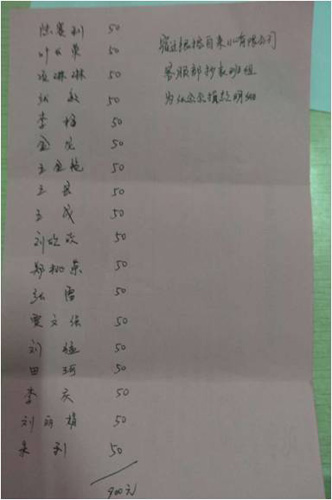 陈霞利 50
叶长荣 50
凌琳琳 50
张敏 50
李梅 50
金花 50
王金艳 50
王芸 50
王成 50
刘欣欢 50
郑柳荣 50
张雷 50
贾文保 50
刘
50
田珂 50
李庆 50
刘丽娟 50
朱利 50
900元
宿迁银控自来水有限公司
客服部抄表班组
为
捐款明细